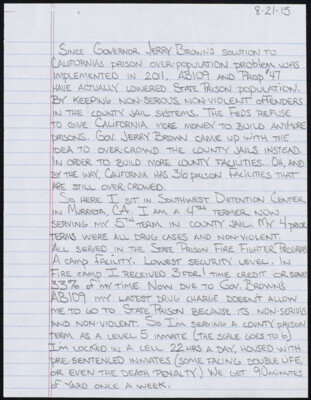 8-21-15
SINCE GOVERNOR JERRY BROWN'S SOLUTION TO
CALIFORNIAS PRISON OVER-POPULATION PROBLEM WAS
IMPLEMENTED IN 2011, AB109 AND PROP #47
HAVE ACTUALLY LOWERED STATE PRISON POPULATION.
BY KEEPING NON-SERIOUS, NON-VIOLENT OFFENDERS
IN THE COUNTY JAIL SYSTEMS. THE FEDS REFUSE
TO GIVE CALIFORNIA MORE MONEY TO BUILD ANYMORE
PRISONS. GOV. JERRY BROWN CAME UP WITH THE
IDEA TO OVER-CROWD THE COUNTY JAILS INSTEAD
IN ORDER TO BUILD MORE COUNTY FACILITIES. OH, AND
BY THE WAY, CALIFORNIA HAS 36 PRISON FACILITIES THAT
ARE STILL OVER CROWED.
SO HERE I SIT IN SOUTHWEST DETENTION CENTER
IN MURRIETA, CA. I AM A 4TH TERMER NOW
SERVING MY 5TH TERM IN COUNTY JAIL. MY 4 PRIOR
TERMS WERE ALL DRUG CASES AND NON-VIOLENT.
ALL SERVED IN THE STATE PRISON FIRE FIGHTER PROGRAM
A CAMP FACILITY. LOWEST SECURITY LEVEL. IN
FIRE CAMP I RECEIVED 3 FOR 1 TIME CREDIT OR SERVED
33% OF MY TIME. NOW DUE TO GOV. BROWN'S
AB109 MY LATEST DRUG CHARGE DOESN'T ALLOW
ME TO GO TO STATE PRISON BECAUSE ITS NON-SERIOUS
AND NON-VIOLENT. SO I'M SERVING A COUNTY PRISON
TERM AS A LEVEL 5 INMATE (THE SCALE GOES TO 6)
I'M LOCKED IN A CELL 22 HRS A DAY, HOUSED WITH
PRE-SENTENCED INMATES (SOME FACING DOUBLE LIFE
OR EVEN THE DEATH PENALTY.) WE GET 90 MINUTES
OF YARD ONCE A WEEK.